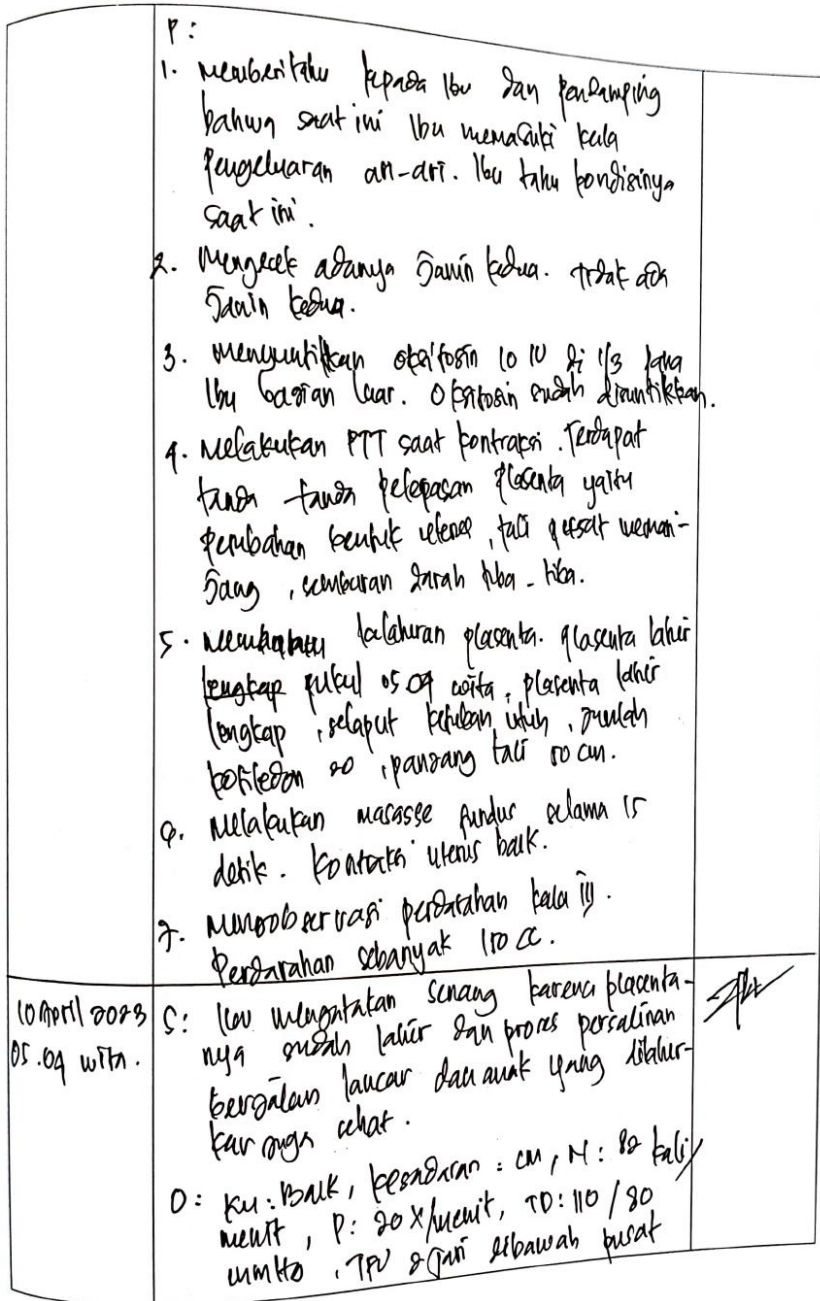 P:
1. Memberitahu kepada Ibu dan pendamping
bahwa saat ini Ibu memasuki kala
pengeluaran ari-ari. Ibu tahu kondisinya
saat ini.
2. Mengecek adanya Janin kedua. tidak ada
Janin kedua.
3. Menyuntikkan oksitosin 10 IU di 1/3 paha
Ibu bagian luar. Oksitosin sudah disuntikkan.
4. Melakukan PTT saat kontraksi. Terdapat
tanda-tanda pelepasan plasenta yaitu
perubahan bentuk uterus, tali pusat meman-
jang, semburan darah tiba-tiba.
5. Membantu kelahiran plasenta. plasenta lahir
lengkap pukul 05.09 wita, plasenta lahir
lengkap, selaput ketuban utuh, jumlah
kotiledon 20, panjang tali 50 cm.
6. Melakukan masasse fundus selama 15
detik. Kontraksi uterus baik.
7. Mengobservasi perdarahan kala III.
Perdarahan sebanyak 150 cc.
10 April 2023
05.09 wita.
S: Ibu mengatakan senang karena placenta-
nya sudah lahir dan proses persalinan
berjalan lancar dan anak yang dilahir-
kan juga sehat.
O: KU: Baik, kesadaran: CM, N: 82 kali/
menit, P: 20 x/menit, TD: 110/80
mmHg, TFU 2 jari dibawah pusat